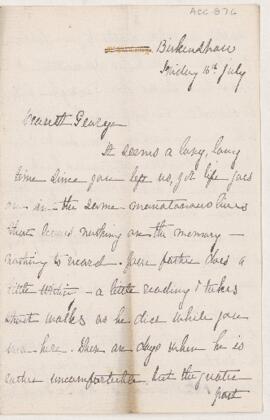 ACC 876
Birkindhair
Friday 16th July
Dearest George
It seems a long, long
time since you left us, yet life goes
on in the same monotonous lines
that leaves nothing on the memory –
nothing to record. Your father does a
little – a little reading & takes
short walks as he did while you
were here. There are days when he is
rather uncomfortable, but the greater
part